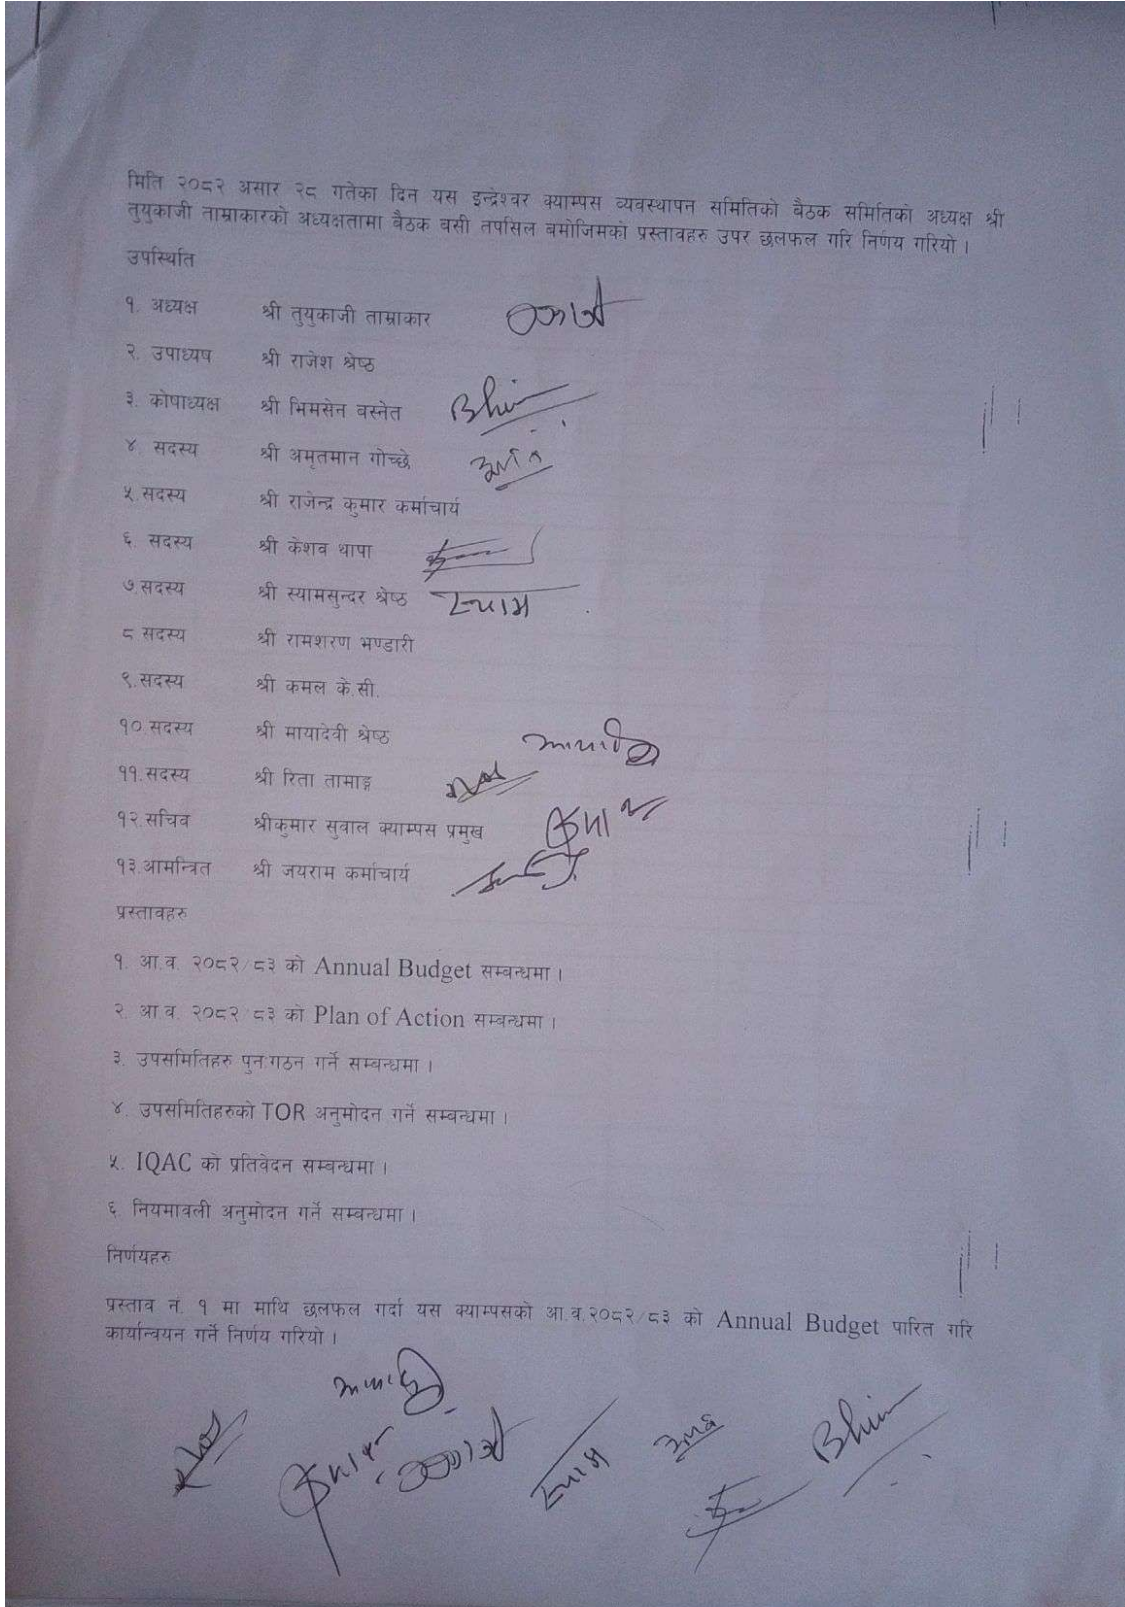 मिति २०८२ असार २८ गतेका दिन यस इन्द्रेश्वर क्याम्पस व्यवस्थापन समितिको बैठक समितिको अध्यक्ष श्री
तुयुकाजी ताम्राकारको अध्यक्षतामा बैठक बसी तपसिल बमोजिमको प्रस्तावहरु उपर छलफल गरि निर्णय गरियो ।
उपस्थिति
१. अध्यक्ष श्री तुयुकाजी ताम्राकार
२. उपाध्यष श्री राजेश श्रेष्ठ
३. कोषाध्यक्ष श्री भिमसेन वस्नेत Bhim
४. सदस्य श्री अमृतमान गोच्छे
५.सदस्य श्री राजेन्द्र कुमार कर्माचार्य
६. सदस्य श्री केशव थापा
७.सदस्य श्री स्यामसुन्दर श्रेष्ठ स्याम
८ सदस्य श्री रामशरण भण्डारी
९.सदस्य श्री कमल के.सी.
१०.सदस्य श्री मायादेवी श्रेष्ठ
११.सदस्य श्री रिता तामाङ्ग
१२.सचिव श्रीकुमार सुवाल क्याम्पस प्रमुख
१३.आमन्त्रित श्री जयराम कर्माचार्य
प्रस्तावहरु
१. आ.व. २०८२/८३ को Annual Budget सम्बन्धमा ।
२. आ.व. २०८२/८३ को Plan of Action सम्बन्धमा ।
३. उपसमितिहरु पुन:गठन गर्ने सम्बन्धमा ।
४. उपसमितिहरुको TOR अनुमोदन गर्ने सम्बन्धमा ।
५. IQAC को प्रतिवेदन सम्बन्धमा ।
६. नियमावली अनुमोदन गर्ने सम्बन्धमा ।
निर्णयहरु
प्रस्ताव नं. १ मा माथि छलफल गर्दा यस क्याम्पसको आ.व.२०८२/८३ को Annual Budget पारित गरि
कार्यान्वयन गर्ने निर्णय गरियो ।
स्याम Bhim